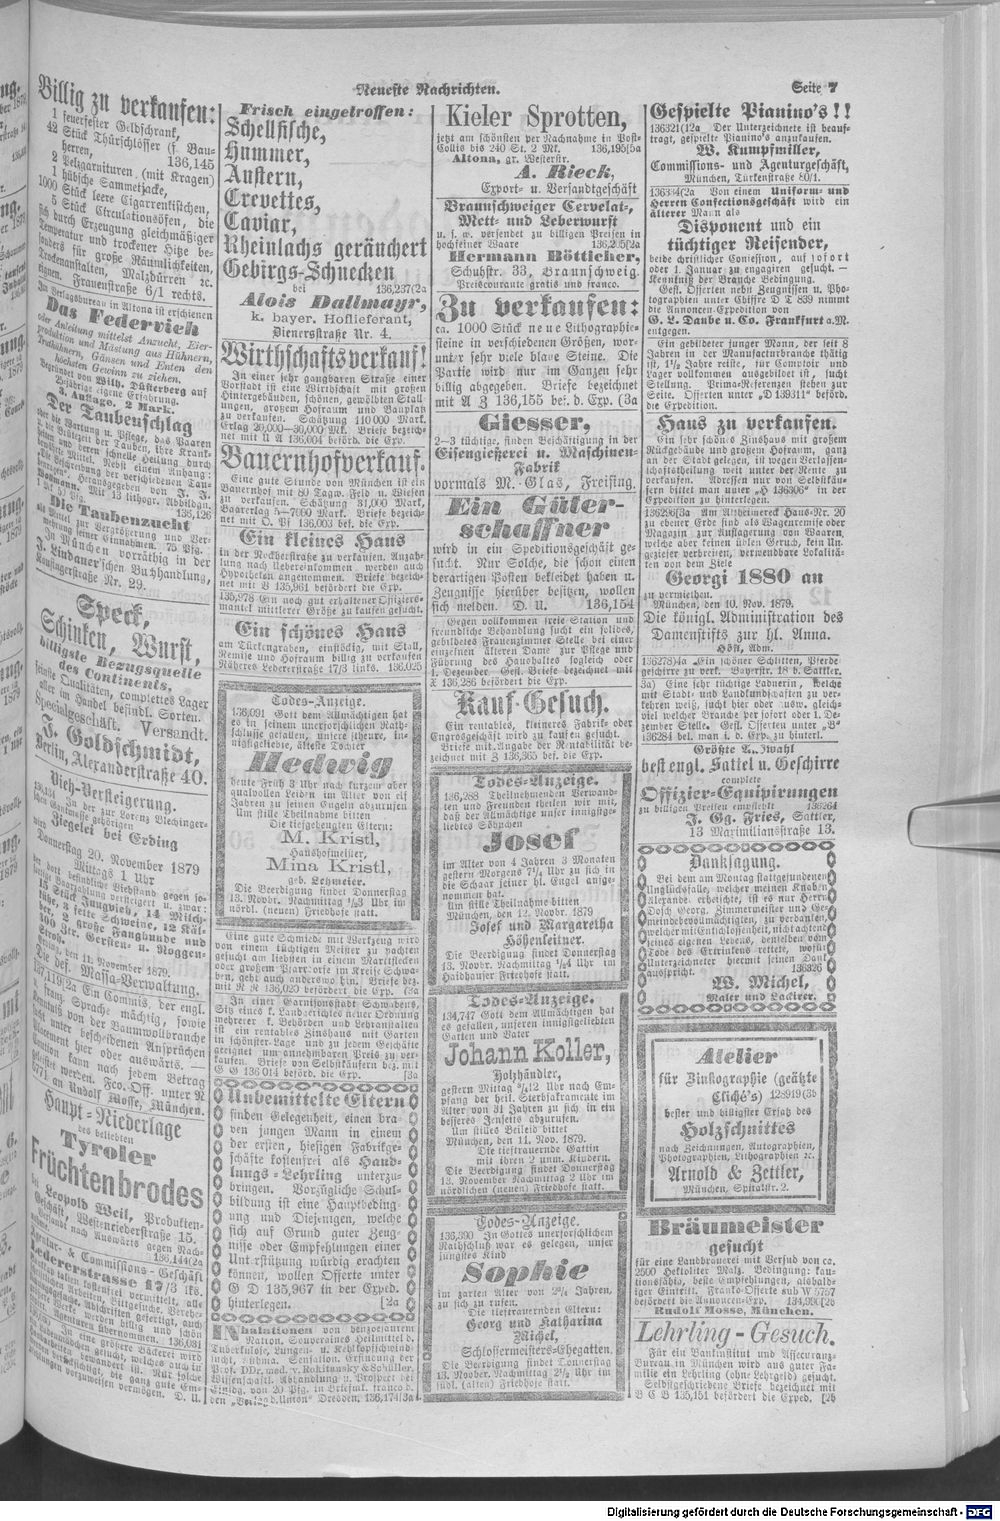 Neueste Nachrichten.
Seite 7
Billig zu verkaufen:
1 feuerfester Geldschrank,
42 Stück Thürschlösser (f. Bau-
herren, 136,145
2 Pelzgarnituren (mit Kragen)
1 hübsche Sammetjacke,
1000 Stück leere Cigarrenkistchen,
5 Stück Circulationsöfen, die
sich durch Erzeugung gleichmäßiger
Temperatur und trockener Hitze be-
sonders für große Räumlichkeiten,
Trockenanstalten, Malzdürren ec.
eignen. Frauenstraße 6/1 rechts.
Im Verlagsbureau in Altona ist erschienen
Das Federvieh
oder Anleitung mittelst Anzucht, Eier-
produktion und Mästung aus Hühnern,
Truthühnern, Gänsen und Enten den
höchsten Gewinn zu ziehen.
Begründet von Wilh. Düsterberg auf
Bejährige eigene Erfahrung.
3. Auflage. 2 Mark.
Der Taubenschlag
oder die Wartung u. Pflege, das Paaren
u. die Brützeit der Tauben, ihre Krank-
heiten und deren schnelle Heilung durch
Mittel. Nebst einem Anhang:
Beschreibung der verschiedenen Tau-
Mit 13 lithogr. Abbildgn.
136,126
Die Taubenzucht
als Mittel zur Vergrößerung und Ver-
mehrung seiner Einnahmen. 75 Pfg.
In München vorräthig in der
J. Lindauer'schen Buchhandlung,
Kaufingerstraße Nr. 29.
Speck,
Schinken, Wurst,
billigste Bezugsquelle
des Continents,
feinste Qualitäten, complettes Lager
aller im Handel befindl. Sorten.
Specialgeschäft. Versandt.
J. Goldschmidt,
Berlin, Alexanderstraße 40.
Vieh-Versteigerung.
136,134 In der zur Lorenz Wiechinger-
schen Gantmasse gehörigen
Ziegelei bei Erding
Donnerstag 20. November 1879
Mittags 1 Uhr
der dort befindliche Viehstand gegen so-
fortige Baarzahlung versteigert u. zwar:
15 Stück Jungvieh, 14 Milch-
kühe, 3 fette Schweine, 12 Käl-
ber, 2 große Fanghunde und
200 Ztr. Gersten- u. Roggen-
stroh.
den 11. November 1879.
Die Def. Massa-Verwaltung.
137,119)2a Ein Commis, der engl.
u. franz. Sprache mächtig, sowie
Kenntniß von der Baumwollbranche
hat, unter bescheidenen Ansprüchen
Engagement hier oder auswärts. —
Caution kann nach jedem Betrag
gestellt werden. Fco.-Off. unter N
6771 an Rudolf Mosse, München.
Haupt-Niederlage
des beliebten
Tyroler
Früchtenbrodes
bei Leopold Weil, Produkten-
Geschäft, Westenriederstraße 15.
Versandt nach Auswärts gegen Nach-
136,144(2a
Agentur- & Commissions-Geschäft
Ledererstrasse 17/3 lks.
136,081
Frisch eingetroffen:
Schellfische,
Hummer,
Austern,
Crevettes,
Caviar,
Rheinlachs geräuchert
Gebirgs-Schnecken
bei 136,237(2a
Alois Dallmayr,
k. bayer. Hoflieferant,
Dienersstraße Nr. 4.
Wirthschaftsverkauf!
In einer sehr gangbaren Straße einer
Vorstadt ist eine Wirthschaft mit großem
Hintergebäuden, schönen, gewölbten Stall-
ungen, großem Hofraum und Bauplatz
zu verkaufen. Schätzung 110 000 Mark.
Erlag 20,000—30,000 Mk. Briefe bezeich-
net mit U A 136,004 beförd. die Exp.
Bauernhofverkauf.
Eine gute Stunde von München ist ein
Bauernhof mit 80 Tagw. Feld u. Wiesen
zu verkaufen. Schätzung 31,000 Mark,
Baarerlag 5—7000 Mark. Briefe bezeich-
net mit O. Pf 136,003 bef. die Exp.
Ein kleines Haus
in der Neckherstraße zu verkaufen. Anzah-
lung nach Uebereinkommen werden auch
Hypotheken angenommen. Briefe bezeich-
net mit B 135,961 befördert die Exp.
135,978 Ein noch gut erhaltener Offiziers-
mantel mittlerer Größe zu kaufen gesucht.
Ein schönes Haus
am Türkengraben, einstöckig, mit Stall,
Remise und Hofraum billig zu verkaufen
Näheres Ledererstraße 17/3 links. 136,025
Todes-Anzeige.
136,091 Gott dem Allmächtigen hat
es in seinem unerforschlichen Rath-
schlusse gefallen, unsere theure, in-
nigstgeliebte, älteste Tochter
Hedwig
heute Früh 3 Uhr nach kurzem aber
qualvollen Leiden im Alter von elf
Jahren zu seinen Engeln abzurufen
Um stille Theilnahme bitten
Die tiefgebeugten Eltern:
M. Kristl,
Haushofmeister,
Mina Kristl,
geb. Lehmeier.
Die Beerdigung findet Donnerstag
13. Novbr. Nachmittag ½3 Uhr im
nördl. (neuen) Friedhofe statt.
Eine gute Schmiede mit Werkzeug wird
von einem tüchtigen Meister zu pachten
gesucht am liebsten in einem Marktflecken
oder großem Pfarrdorfe im Kreise Schwa-
ben, geht auch anderswo hin. Briefe bez.
mit R R 136,023 befördert die Exp. (3a
In einer Garnisonsstadt Schwabens,
Sitz eines k. Landgerichtes neuer Ordnung
mehrerer k. Behörden und Lehranstalten
ist ein rentables Zinshaus mit Garten
in schönster Lage und zu jedem Geschäfte
geeignet um annehmbaren Preis zu ver-
kaufen. Briefe von Selbstkäufern bez. mit
G G 136 014 beförd. die Exp. (3a
Unbemittelte Eltern
finden Gelegenheit, einen bra-
ven jungen Mann in einem
der ersten, hiesigen Fabrikge-
schäfte kostenfrei als Hand-
lungs-Lehrling unterzu-
bringen. Vorzügliche Schul-
bildung ist eine Hauptbeding-
ung und Diejenigen, welche
sich auf Grund guter Zeug-
nisse oder Empfehlungen einer
Unterstützung würdig erachten
können, wollen Offerte unter
G D 135,967 in der Exped.
hinterlegen. [2a
Inhalationen von benzoesaurem
Natron, Souveraines Heilmittel b.
Tuberkulose, Lungen- u. Kehlkopfschwind-
sucht, Asthma. Sensation. Erfindung der
Prof. DDr. med. v. Rokitansky & Schüller.
Wissenschaftl. Abhandlung u. Prospect bei
Einsdg. von 20 Pfg. in Briefmk. franco d.
den „Verlag d. Union“ Dresden. 136,174(3a
Kieler Sprotten,
jetzt am schönsten per Nachnahme in Post-
Collis bis 240 St. 2 Mk. 136,195[5a
Altona, gr. Westerstr.
A. Rieck,
Export- u. Versandtgeschäft
Braunschweiger Cervelat-,
Mett- und Leberwurst
u. s. w. versendet zu billigen Preisen in
hochfeiner Waare 136,205(2a
Hermann Bötticher,
Schuhstr. 33, Braunschweig.
Preiscourante gratis und franco.
Zu verkaufen:
ca. 1000 Stück neue Lithographie-
steine in verschiedenen Größen, wor-
unter sehr viele blaue Steine. Die
Partie wird nur im Ganzen sehr
billig abgegeben. Briefe bezeichnet
mit A Z 136,155 bef. d. Exp. (3a
Giesser,
2—3 tüchtige, finden Beschäftigung in der
Eisengießerei u. Maschinen-
Fabrik
vormals M. Glas, Freising.
Ein Güter-
schaffner
wird in ein Speditionsgeschäft ge-
sucht. Nur Solche, die schon einen
derartigen Posten bekleidet haben u.
Zeugnisse hierüber besitzen, wollen
sich melden. D. U. 136,154
Gegen vollkommen freie Station und
freundliche Behandlung sucht ein solides,
gebildetes Frauenzimmer Stelle bei einer
einzelnen älteren Dame zur Pflege und
Führung des Haushaltes sogleich oder
1. Dezember. Gest. Briefe bezeichnet mit
X 136,286 befördert die Exp.
Kauf-Gesuch.
Ein rentables, kleineres Fabrik- oder
Engrosgeschäft wird zu kaufen gesucht.
Briefe mit Angabe der Rentabilität be-
zeichnet mit Z 136,365 bef. die Exp.
Todes-Anzeige.
136,288 Theilnehmenden Verwand-
ten und Freunden theilen wir mit,
daß der Allmächtige unser innigstge-
liebtes Söhnchen
Josef
im Alter von 4 Jahren 3 Monaten
gestern Morgens 7¼ Uhr zu sich in
die Schaar seiner hl. Engel aufge-
nommen hat.
Um stille Theilnahme bitten
München, den 12. Novbr. 1879
Josef und Margaretha
Höhenleitner.
Die Beerdigung findet Donnerstag
13. Novbr. Nachmittag ¼4 Uhr im
Haidhauser Friedhofe statt.
Todes-Anzeige.
134,747 Gott dem Allmächtigen hat
es gefallen, unseren innigstgeliebten
Gatten und Vater
Johann Koller,
Holzhändler,
gestern Mittag ¾12 Uhr nach Em-
pfang der heil. Sterbsakramente im
Alter von 31 Jahren zu sich in ein
besseres Jenseits abzurufen.
Um stilles Beileid bittet
München, den 11. Nov. 1879.
Die tieftrauernde Gattin
mit ihren 2 unm. Kindern.
Die Beerdigung findet Donnerstag
13. November Nachmittag 2 Uhr im
nördlichen (neuen) Friedhofe statt.
Todes-Anzeige.
136,390 In Gottes unerforschlichem
Rathschluß war es gelegen, unser
jüngstes Kind
Sophie
im zarten Alter von 2¾ Jahren,
zu sich zu rufen.
Die tieftrauernden Eltern:
Georg und Katharina
Michel,
Schlossermeisters-Ehegatten.
Die Beerdigung findet Donnerstag
13. Novber. Nachmittag 2½ Uhr im
südl. (alten) Friedhofe statt.
Gespielte Pianino's!!
136321(12a Der Unterzeichnete ist beauf-
tragt, gespielte Pianino's anzukaufen.
W. Kumpfmiller,
Commissions- und Agenturgeschäft,
München, Türkenstraße 80/1.
136334(2a Von einem Uniform- und
Herren Confectionsgeschäft wird ein
älterer Mann als
Disponent und ein
tüchtiger Reisender,
beide christlicher Confession, auf sofort
oder 1. Januar zu engagiren gesucht. —
Kenntniß der Branche Bedingung.
Gest. Offerten nebst Zeugnissen u. Pho-
tographien unter Chiffre D T 839 nimmt
die Annoncen-Expedition von
G. L. Daube u. Co. Frankfurt a.M.
entgegen.
Ein gebildeter junger Mann, der seit 8
Jahren in der Manufacturbranche thätig
ist, 1½ Jahre reiste, für Comptoir und
Lager vollkommen ausgebildet ist, sucht
Stellung. Prima-Referenzen stehen zur
Seite. Offerten unter „D 139311“ beförd.
die Expedition.
Haus zu verkaufen.
Ein sehr schönes Zinshaus mit großem
Rückgebäude und großem Hofraum, ganz
an der Stadt gelegen, ist wegen Verlassen-
schaftstheilung weit unter der Rente zu
verkaufen. Adressen nur von Selbstkäu-
fern bittet man unter „H 136306“ in der
Expedition zu hinterlegen.
136296[3a Am Altheimereck Haus-Nr. 20
zu ebener Erde sind als Wagenremise oder
Magazin zur Auflagerung von Waaren,
welche aber keinen üblen Geruch, kein Un-
geziefer verbreiten, verwendbare Lokalitä-
ten von dem Ziele
Georgi 1880 an
zu vermiethen.
München, den 10. Nov. 1879.
Die königl. Administration des
Damenstifts zur hl. Anna.
Höß, Adm.
136278)4a Ein schöner Schlitten, Pferde-
geschirre zu verk. Bayerstr. 18 b. Sattler.
3a) Eine sehr tüchtige Ladnerin, welche
mit Stadt- und Landkundschaften zu ver-
kehren weiß, sucht hier oder ausw. gleich-
viel welcher Branche per sofort oder 1. De-
zember Stelle. Gest. Offerten unter „B“
136284 bel. man i. d. Exp. zu hinterl.
Größte Auswahl
best engl. Sattel u. Geschirre
complete
Offizier-Equipirungen
zu billigen Preisen empfiehlt 136264
J. Gg. Fries, Sattler,
13 Maximiliansstraße 13.
Danksagung.
Bei dem am Montag stattgefundenen
Unglücksfalle, welcher meinen Knaben
Alexander ereichte, ist es nur Herrn
Dosch Georg, Zimmermeister und Ge-
meindebevollmächtigten, zu verdanken,
welcher mit Entschlossenheit, nicht achtend
seines eigenen Lebens, denselben vom
Tode des Ertrinkens rettete, wofür
Unterzeichneter hiermit seinen Dank
ausspricht. 136326
W. Michel,
Maler und Lackirer.
Atelier
für Zinkographie (geätzte
Cliché's) 128919(3b
bester und billigster Ersatz des
Holzschnittes
nach Zeichnungen, Autographien,
Photographien, Lithographien ec.
Arnold & Zettler,
München, Spitalstr. 2.
Bräumeister
gesucht
für eine Landbrauerei mit Versud von ca.
2500 Hektoliter Malz. Bedingung: kau-
tionsfähig, beste Empfehlungen, alsbald-
iger Eintritt. Franko-Offerte sub W 5757
befördert die Annoncen-Exp. 134,990[2b
Rudolf Mosse, München.
Lehrling-Gesuch.
Für ein Bankinstitut und Assecuranz-
Bureau in München wird aus guter Fa-
milie ein Lehrling (ohne Lehrgeld) gesucht.
Selbstgeschriebene Briefe bezeichnet mit
B C B 135,151 befördert die Exped. [2b
Digitalisierung gefördert durch die Deutsche Forschungsgemeinschaft - DFG